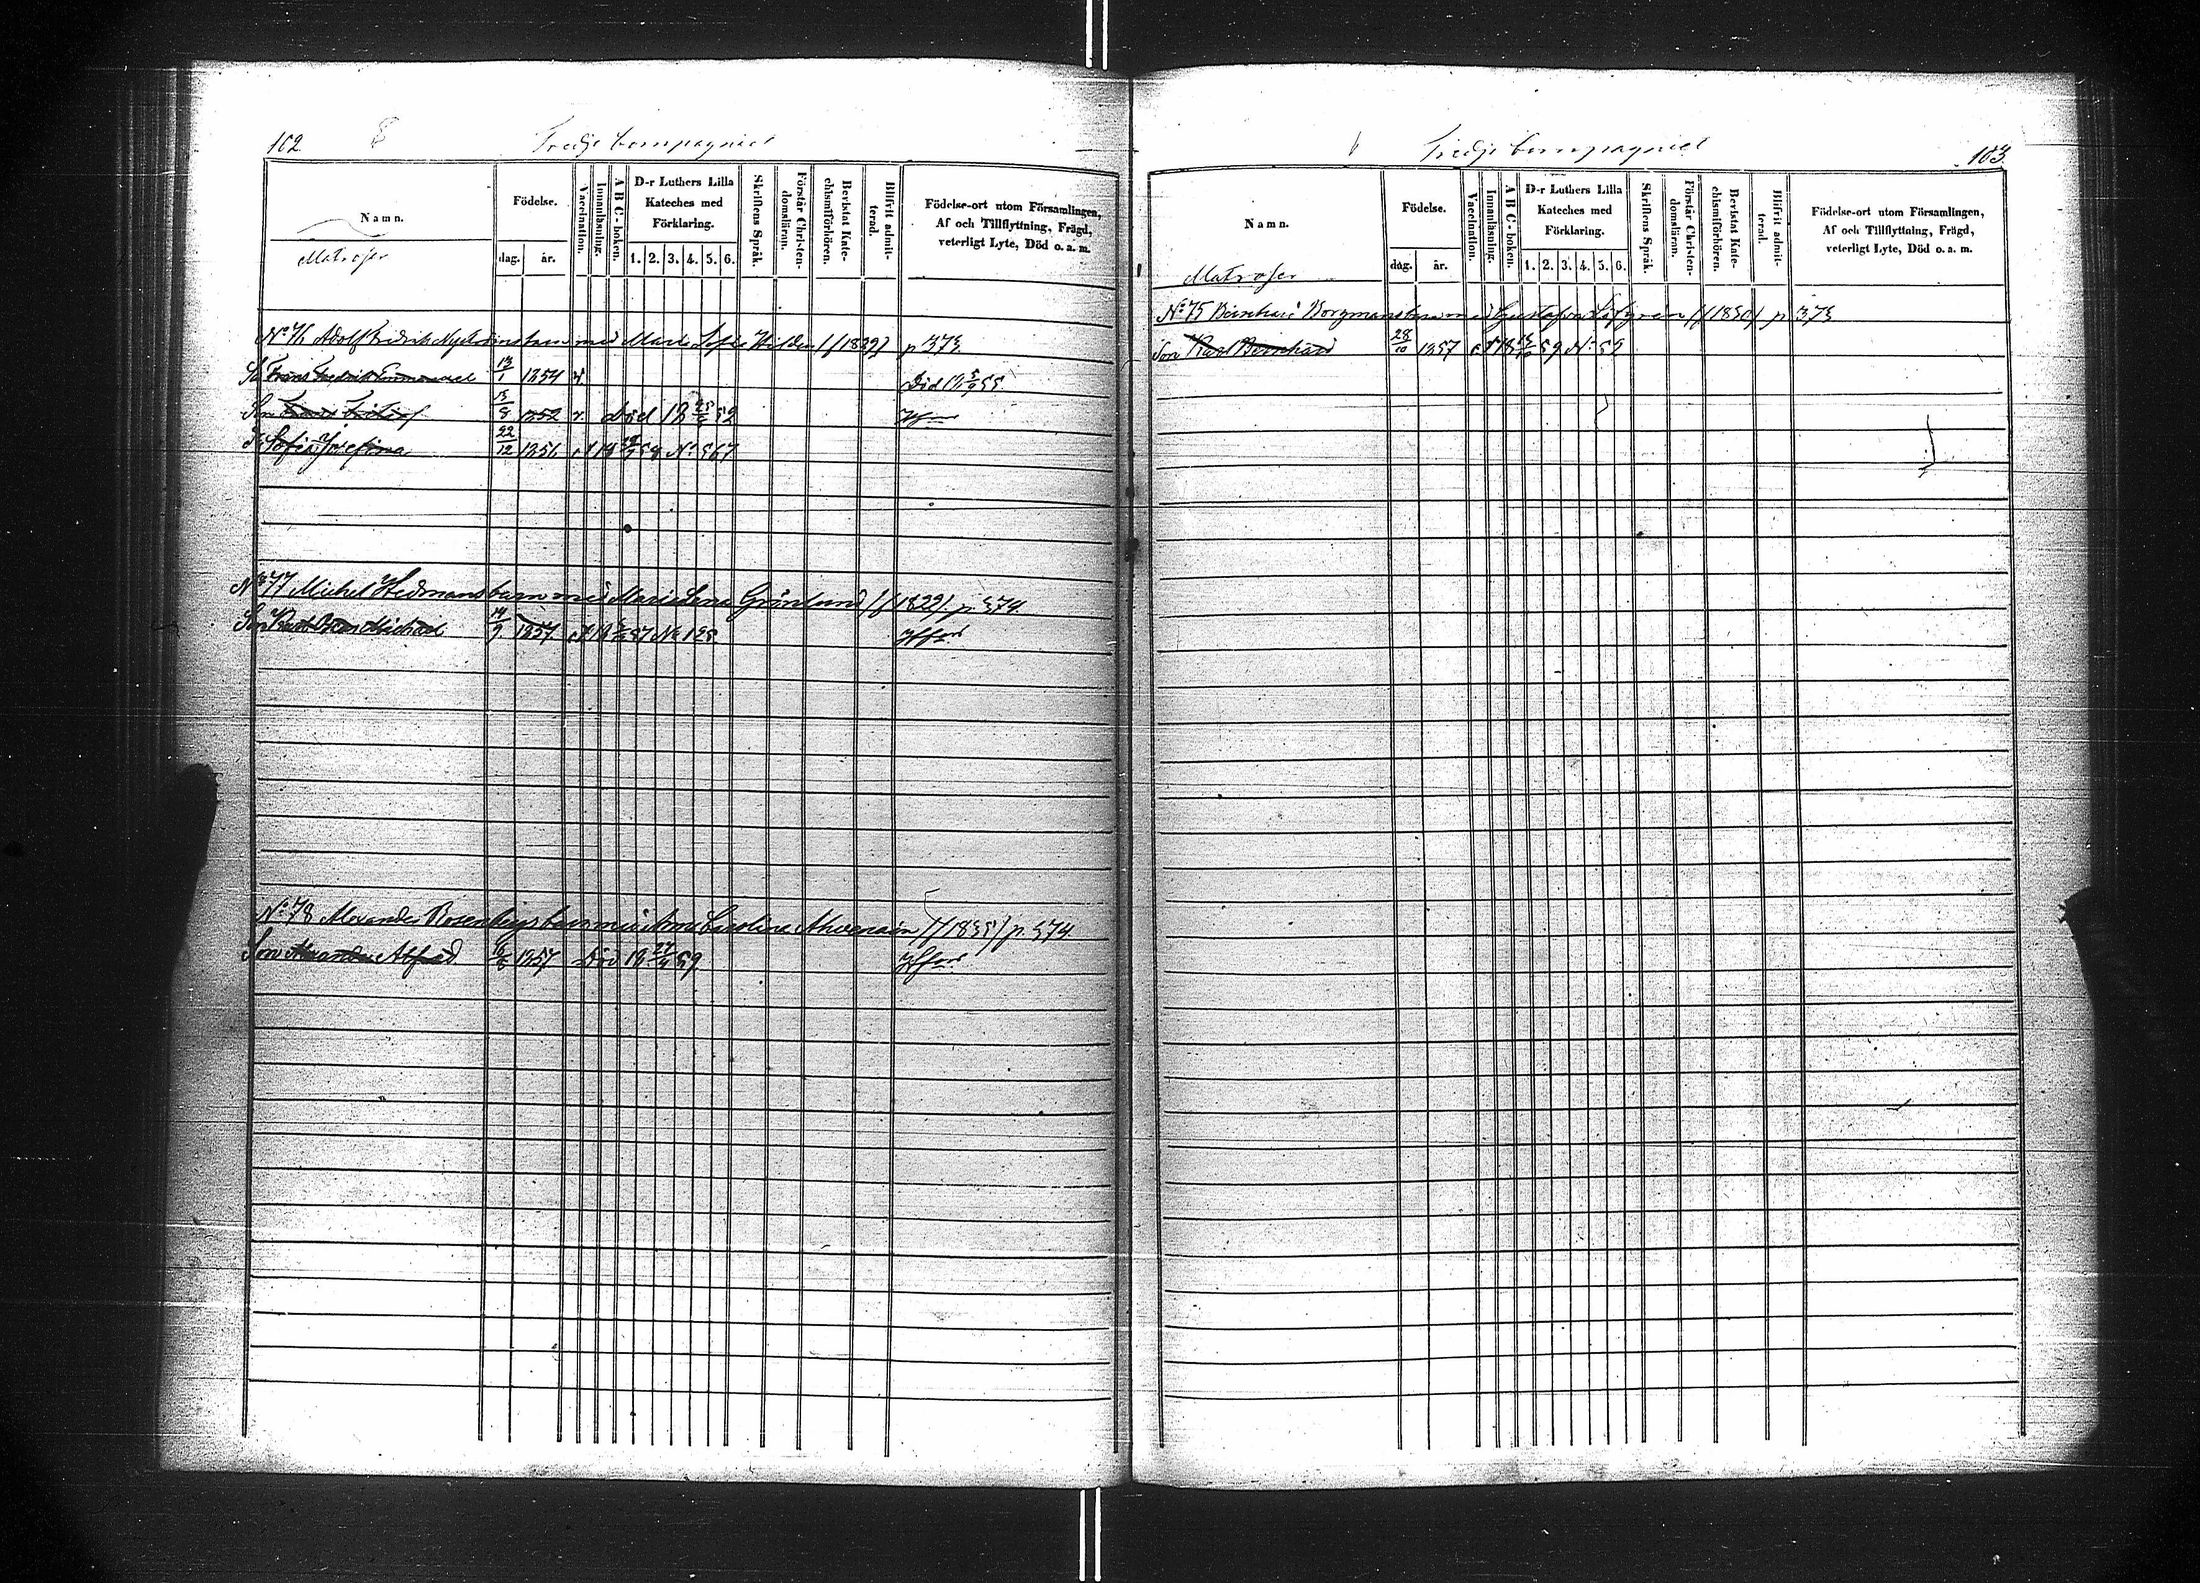 102
Tredje Compagniet
Namn.
Födelse.
dag. år.
Vaccination.
Innanläsning.
A B C - boken.
D-r Luthers Lilla Kateches med Förklaring.
1. 2. 3. 4. 5. 6.
Skriftens Språk.
Förstår Christendomsläran.
Bevistat Katechismiförhören.
Blifvit admitterad.
Födelse-ort utom Församlingen,
Af och Tillflyttning, Frägd,
veterligt Lyte, Död o. a. m.
Matroser
No 76 Adolf Fredrik barn med Maria Sofia Wilden (f 1829) p 373.
Frans Fredrik Emmanuel 13/1 1854 Död
Son 15/8 1852 v. död 18 52
Sofia Josefina 22/12 1856 No 567
No 77 Michel Hedmans barn med Maria Lena Grönlund (f 1822) p 374
Son Karl Oscar Michael 14/9 1857 No 198
No 78 Alexander Rosenbergs barn med Anna Carolina Ahvenain (f 1835) p 374
Son Alexander Alfred 1857 Död 18 59
Tredje Compagniet
103
Namn.
Födelse.
dag. år.
Vaccination.
Innanläsning.
A B C - boken.
D-r Luthers Lilla Kateches med Förklaring.
1. 2. 3. 4. 5. 6.
Skriftens Språk.
Förstår Christendomsläran.
Bevistat Katechismiförhören.
Blifvit admitterad.
Födelse-ort utom Församlingen,
Af och Tillflyttning, Frägd,
veterligt Lyte, Död o. a. m.
Matroser
No 75 Bernhard Borgmans barn med Gustafva Löfgren (f 1830) p 373
Son Karl Bernhard 28/10 1857 59 No 52